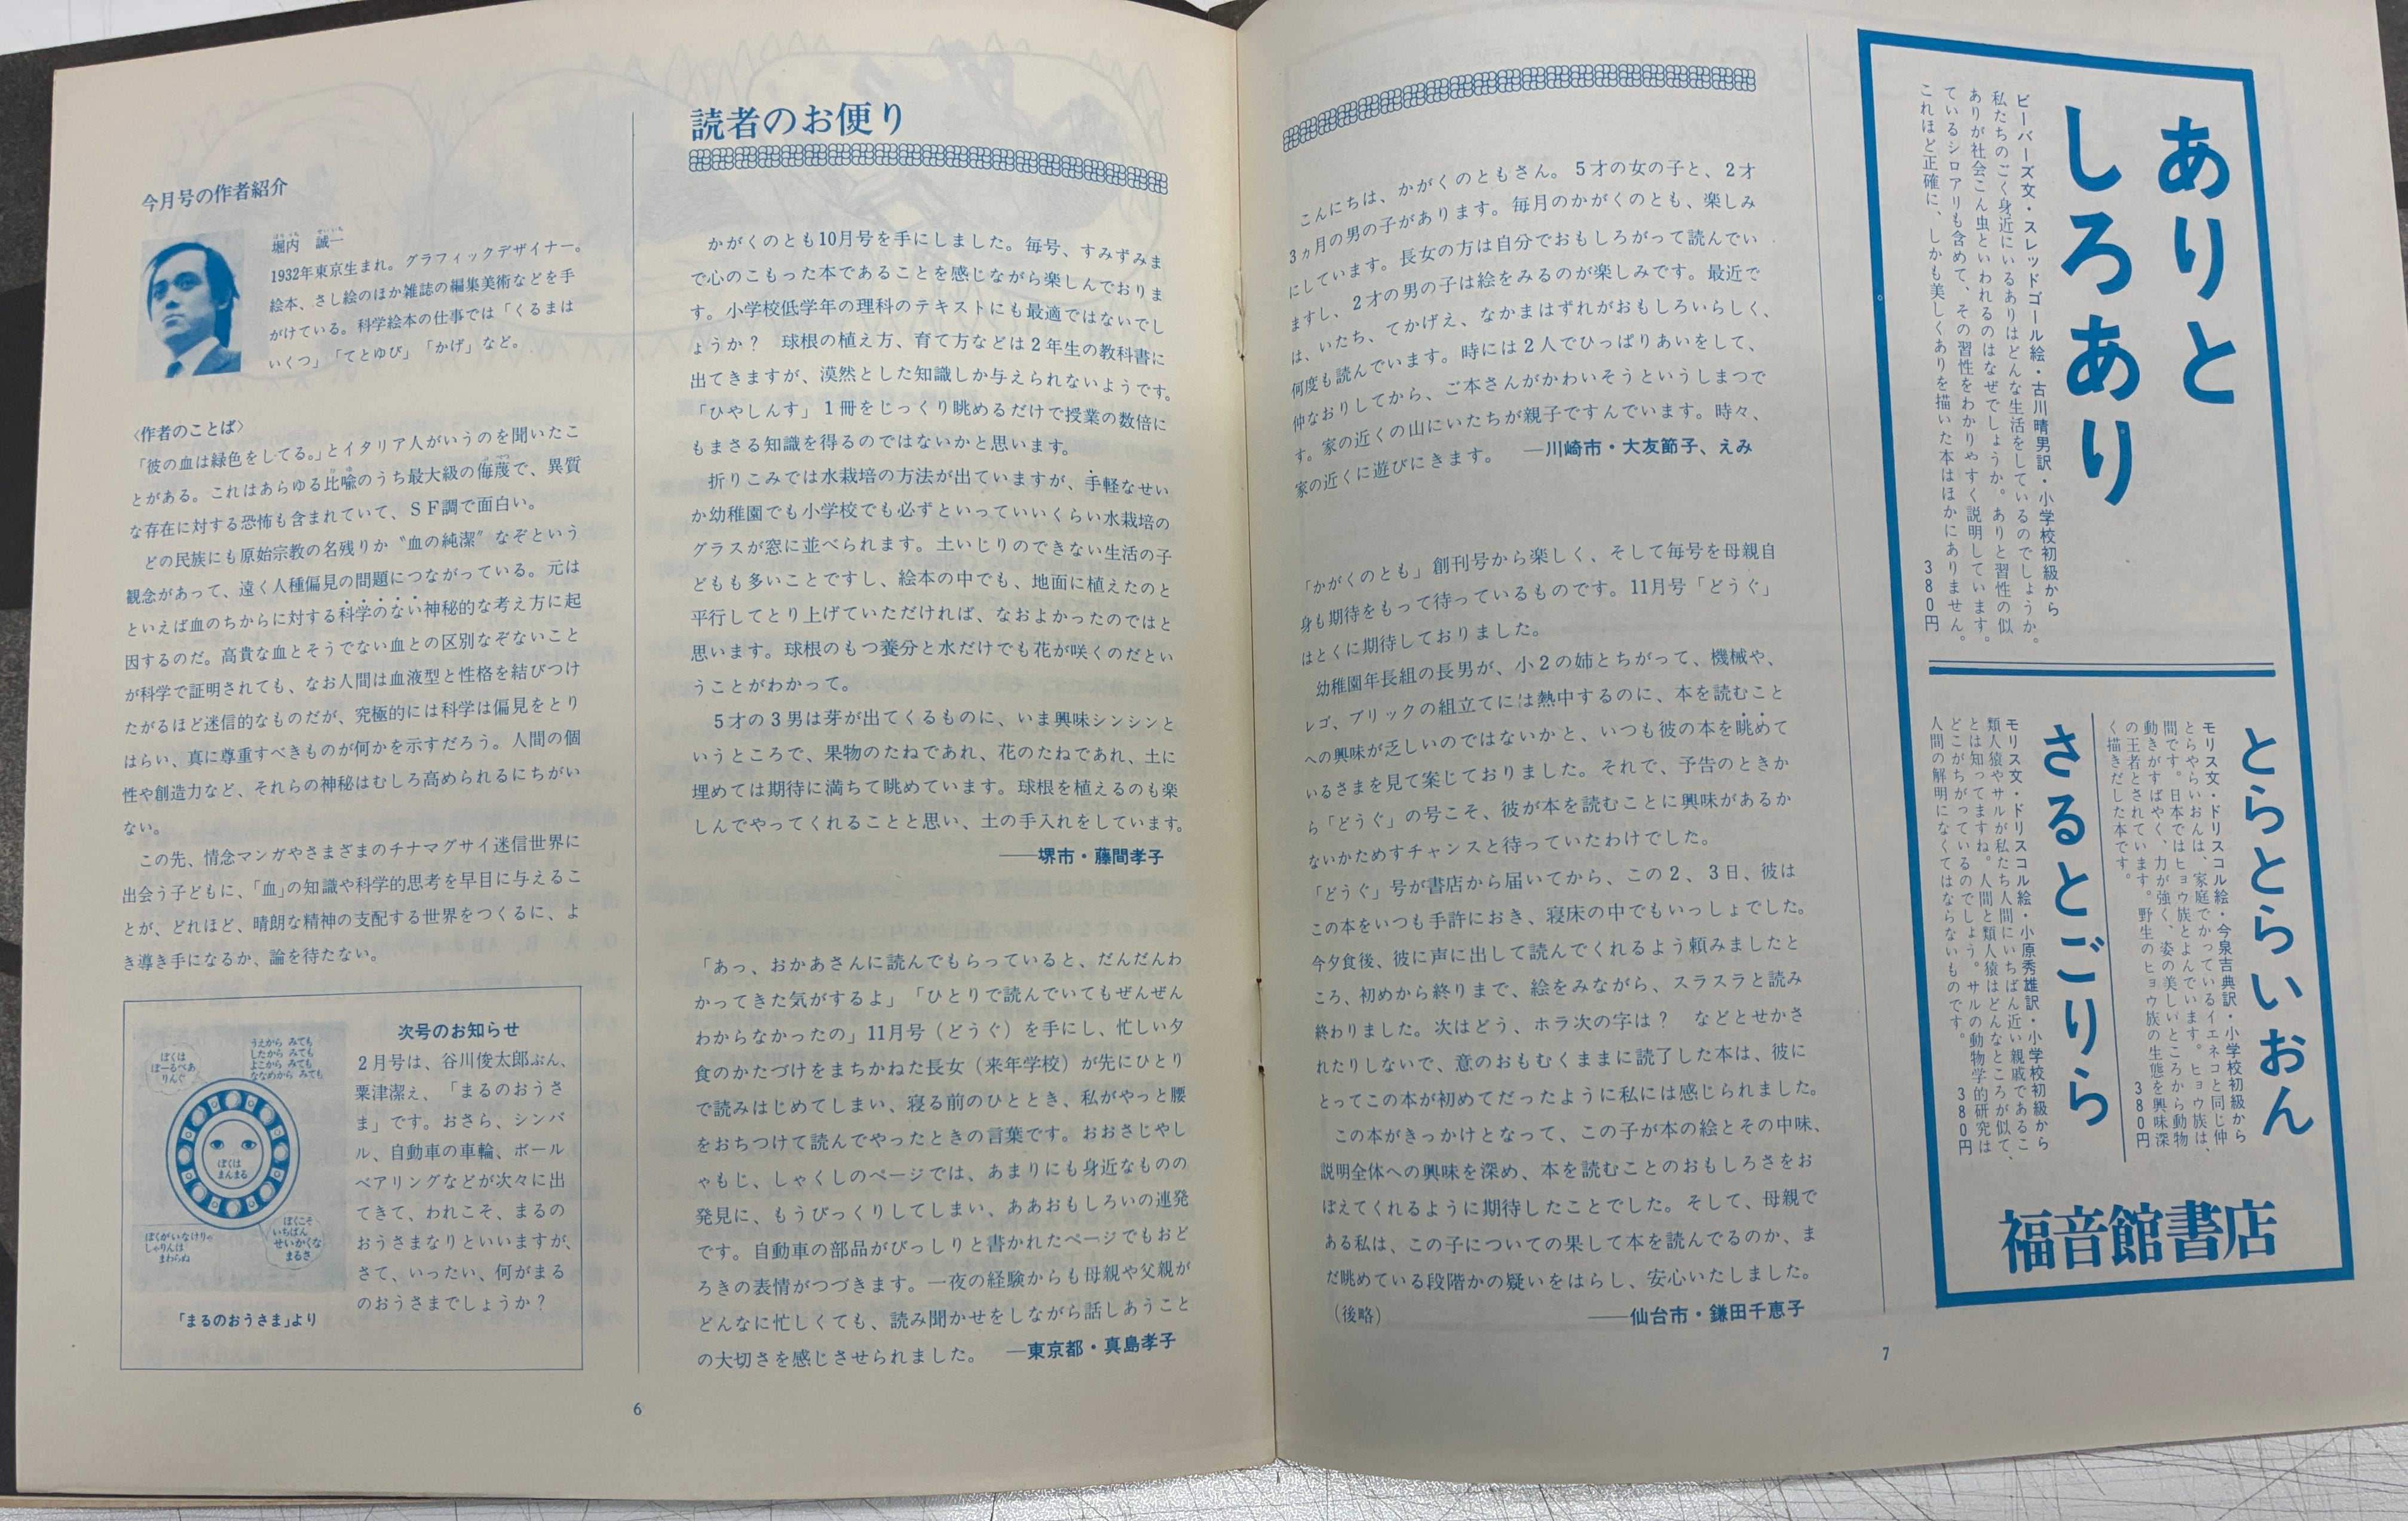 今月号の作者紹介
堀内 誠一
1932年東京生まれ。グラフィックデザイナー。
絵本、さし絵のほか雑誌の編集美術などを手
がけている。科学絵本の仕事では「くるまは
いくつ」「てとゆび」「かげ」など。
〈作者のことば〉
「彼の血は緑色をしてる。」とイタリア人がいうのを聞いたこ
とがある。これはあらゆる比喩のうち最大級の侮蔑で、異質
な存在に対する恐怖も含まれていて、ＳＦ調で面白い。
どの民族にも原始宗教の名残りか〝血の純潔〟なぞという
観念があって、遠く人種偏見の問題につながっている。元は
といえば血のちからに対する科学のない神秘的な考え方に起
因するのだ。高貴な血とそうでない血との区別なぞないこと
が科学で証明されても、なお人間は血液型と性格を結びつけ
たがるほど迷信的なものだが、究極的には科学は偏見をとり
はらい、真に尊重すべきものが何かを示すだろう。人間の個
性や創造力など、それらの神秘はむしろ高められるにちがい
ない。
この先、情念マンガやさまざまのチナマグサイ迷信世界に
出会う子どもに、「血」の知識や科学的思考を早目に与えるこ
とが、どれほど、晴朗な精神の支配する世界をつくるに、よ
き導き手になるか、論を待たない。
ぼくは
ぼーるべあ
りんぐ
うえから みても
したから みても
よこから みても
ななめから みても
ぼくは
まんまる
ぼくがいなけりゃ
しゃりんは
まわらぬ
ぼくこそ
いちばん
せいかくな
まるさ
「まるのおうさま」より
次号のお知らせ
２月号は、谷川俊太郎ぶん、
粟津潔え、「まるのおうさ
ま」です。おさら、シンバ
ル、自動車の車輪、ボール
ベアリングなどが次々に出
てきて、われこそ、まるの
おうさまなりといいますが、
さて、いったい、何がまる
のおうさまでしょうか？
読者のお便り
かがくのとも10月号を手にしました。毎号、すみずみま
で心のこもった本であることを感じながら楽しんでおりま
す。小学校低学年の理科のテキストにも最適ではないでし
ょうか？　球根の植え方、育て方などは２年生の教科書に
出てきますが、漠然とした知識しか与えられないようです。
「ひやしんす」１冊をじっくり眺めるだけで授業の数倍に
もまさる知識を得るのではないかと思います。
折りこみでは水栽培の方法が出ていますが、手軽なせい
か幼稚園でも小学校でも必ずといっていいくらい水栽培の
グラスが窓に並べられます。土いじりのできない生活の子
どもも多いことですし、絵本の中でも、地面に植えたのと
平行してとり上げていただければ、なおよかったのではと
思います。球根のもつ養分と水だけでも花が咲くのだとい
うことがわかって。
５才の３男は芽が出てくるものに、いま興味シンシンと
いうところで、果物のたねであれ、花のたねであれ、土に
埋めては期待に満ちて眺めています。球根を植えるのも楽
しんでやってくれることと思い、土の手入れをしています。
――堺市・藤間孝子
「あっ、おかあさんに読んでもらっていると、だんだんわ
かってきた気がするよ」「ひとりで読んでいてもぜんぜん
わからなかったの」11月号（どうぐ）を手にし、忙しい夕
食のかたづけをまちかねた長女（来年学校）が先にひとり
で読みはじめてしまい、寝る前のひととき、私がやっと腰
をおちつけて読んでやったときの言葉です。おおさじやし
ゃもじ、しゃくしのページでは、あまりにも身近なものの
発見に、もうびっくりしてしまい、ああおもしろいの連発
です。自動車の部品がびっしりと書かれたページでもおど
ろきの表情がつづきます。一夜の経験からも母親や父親が
どんなに忙しくても、読み聞かせをしながら話しあうこと
の大切さを感じさせられました。　―東京都・真島孝子
6
こんにちは、かがくのともさん。５才の女の子と、２才
３ヵ月の男の子があります。毎月のかがくのとも、楽しみ
にしています。長女の方は自分でおもしろがって読んでい
ますし、２才の男の子は絵をみるのが楽しみです。最近で
は、いたち、てかげえ、なかまはずれがおもしろいらしく、
何度も読んでいます。時には２人でひっぱりあいをして、
仲なおりしてから、ご本さんがかわいそうというしまつで
す。家の近くの山にいたちが親子ですんでいます。時々、
家の近くに遊びにきます。　―川崎市・大友節子、えみ
「かがくのとも」創刊号から楽しく、そして毎号を母親自
身も期待をもって待っているものです。11月号「どうぐ」
はとくに期待しておりました。
幼稚園年長組の長男が、小２の姉とちがって、機械や、
レゴ、ブリックの組立てには熱中するのに、本を読むこと
への興味が乏しいのではないかと、いつも彼の本を眺めて
いるさまを見て案じておりました。それで、予告のときか
ら「どうぐ」の号こそ、彼が本を読むことに興味があるか
ないかためすチャンスと待っていたわけでした。
「どうぐ」号が書店から届いてから、この２、３日、彼は
この本をいつも手許におき、寝床の中でもいっしょでした。
今夕食後、彼に声に出して読んでくれるよう頼みましたと
ころ、初めから終りまで、絵をみながら、スラスラと読み
終わりました。次はどう、ホラ次の字は？　などとせかさ
れたりしないで、意のおもむくままに読了した本は、彼に
とってこの本が初めてだったように私には感じられました。
この本がきっかけとなって、この子が本の絵とその中味、
説明全体への興味を深め、本を読むことのおもしろさをお
ぼえてくれるように期待したことでした。そして、母親で
ある私は、この子についての果して本を読んでるのか、ま
だ眺めている段階かの疑いをはらし、安心いたしました。
（後略）　――仙台市・鎌田千恵子
ありと
しろあり
ビーバーズ文・スレッドゴール絵・古川晴男訳・小学校初級から
私たちのごく身近にいるありはどんな生活をしているのでしょうか。
ありが社会こん虫といわれるのはなぜでしょうか。ありと習性の似
ているシロアリも含めて、その習性をわかりやすく説明しています。
これほど正確に、しかも美しくありを描いた本はほかにありません。
380円
とらとらいおん
モリス文・ドリスコル絵・今泉吉典訳・小学校初級から
とらやらいおんは、家庭でかっているイエネコと同じ仲
間です。日本ではヒョウ族とよんでいます。ヒョウ族は、
動きがすばやく、力が強く、姿の美しいところから動物
の王者とされています。野生のヒョウ族の生態を興味深
く描きだした本です。　380円
さるとごりら
モリス文・ドリスコル絵・小原秀雄訳・小学校初級から
類人猿やサルが私たち人間にいちばん近い親戚であるこ
とは知ってますね。人間と類人猿はどんなところが似て、
どこがちがっているのでしょう。サルの動物学的研究は
人間の解明になくてはならないものです。　380円
福音館書店
7